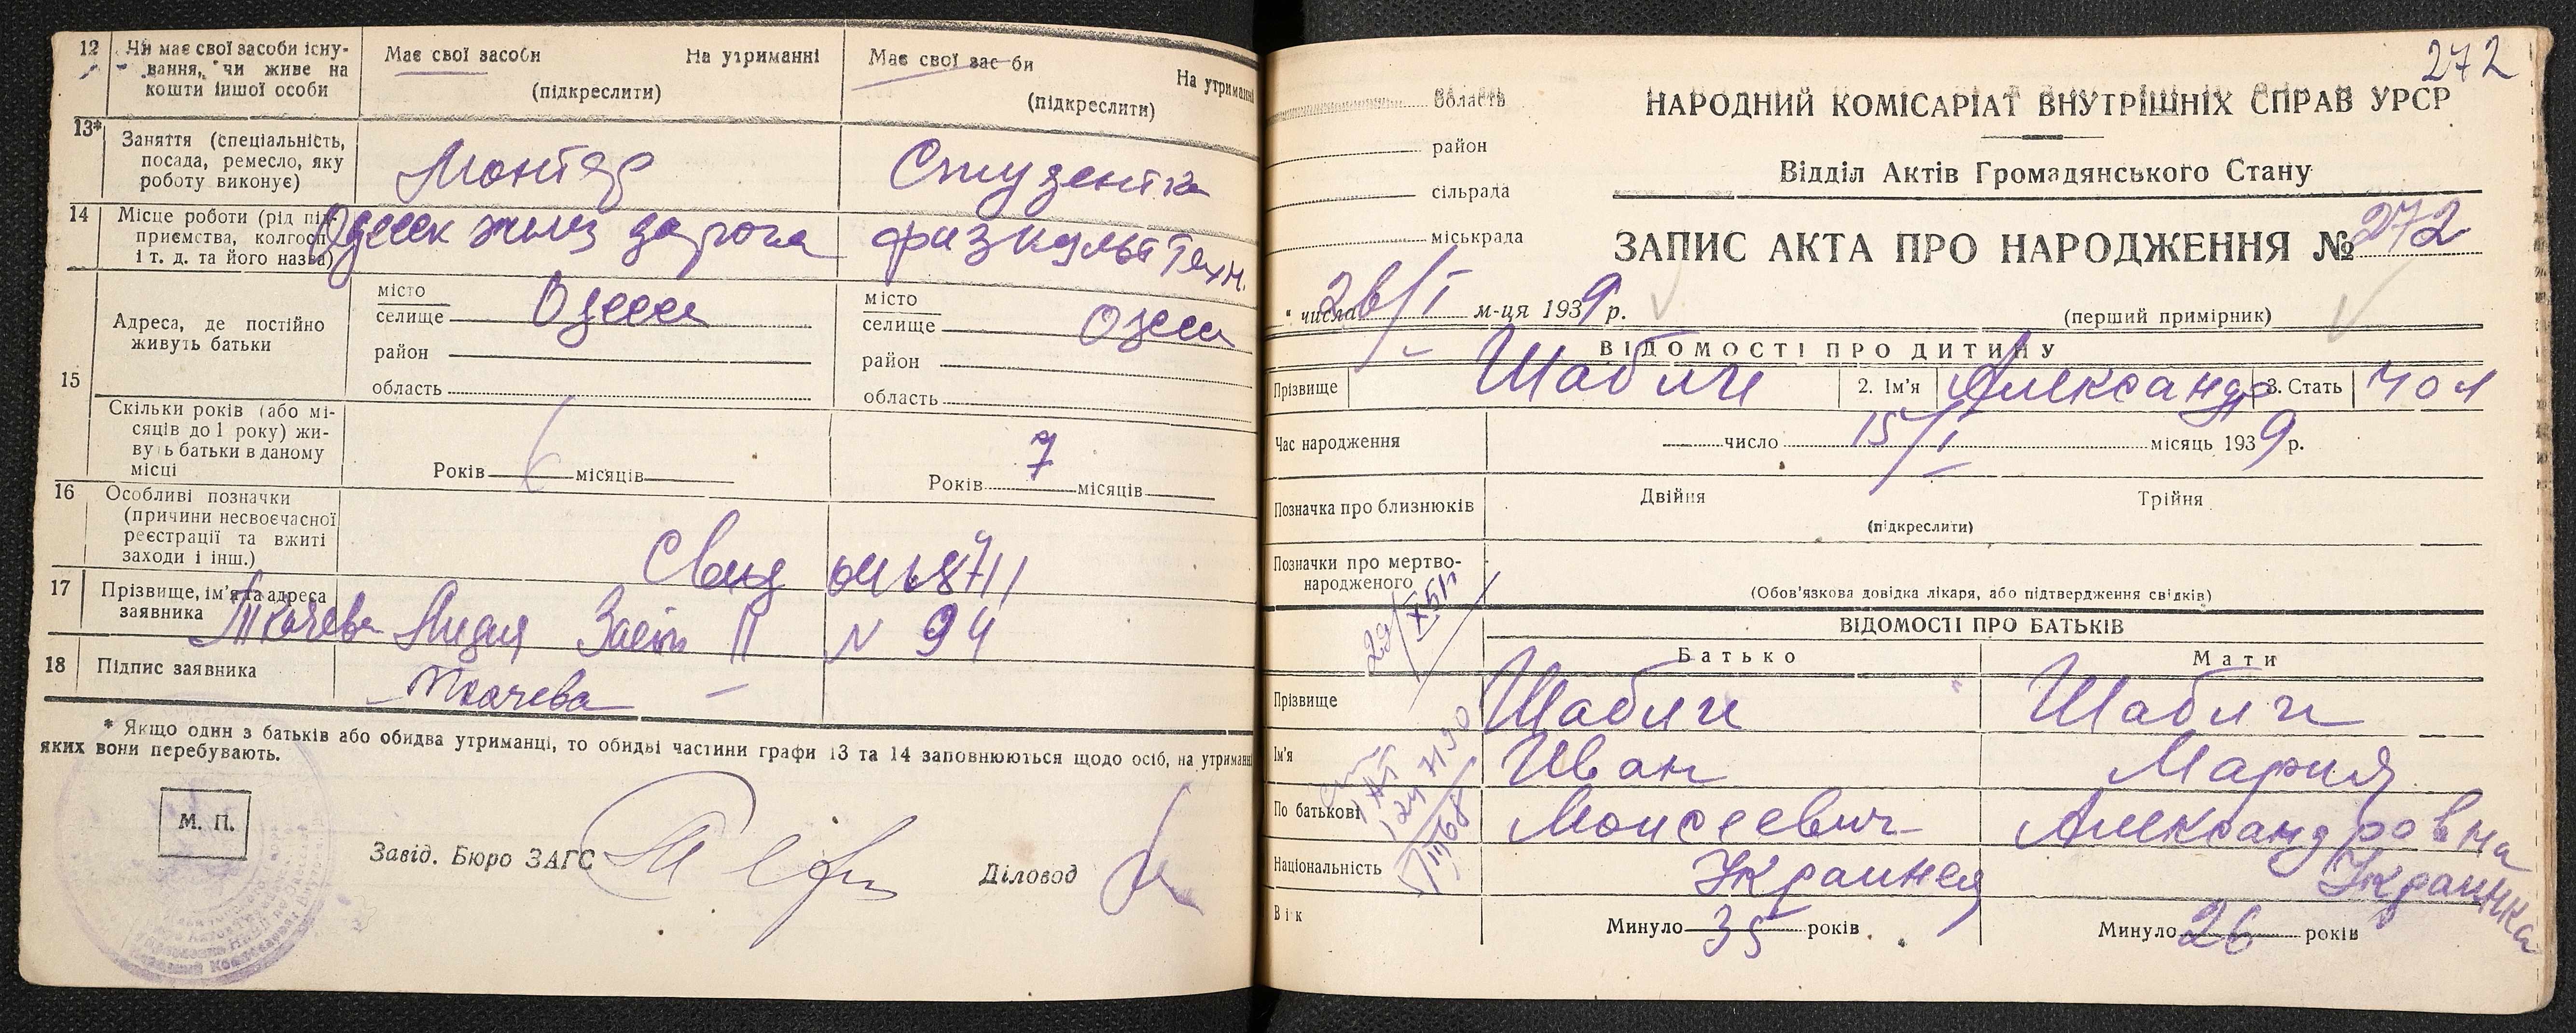 12 Чи має свої засоби існу-
вання, чи живе на
кошти іншої особи
Має свої засоби На утриманні
(підкреслити)
Має свої засоби На утриманні
(підкреслити)
13* Заняття (спеціальність,
посада, ремесло, яку
роботу виконує)
Монтер
Студентка
14 Місце роботи (рід під-
приємства, колгосп
і т. д. та його назва)
Одесск дорога
физкульт Техн.
15 Адреса, де постійно
живуть батьки
місто
селище Одесса
район
область
місто
селище Одесса
район
область
Скільки років (або мі-
сяців до 1 року) жи-
вуть батьки в даному
місці
Років місяців
Років 7 місяців
16 Особливі позначки
(причини несвоєчасної
реєстрації та вжиті
заходи і інш.)
17 Прізвище, ім'я та адреса
заявника
Ткачева Лидия II N 94
18 Підпис заявника
Ткачева
* Якщо один з батьків або обидва утриманці, то обидві частини графи 13 та 14 заповнюються щодо осіб, на утриманні
яких вони перебувають.
М. П.
Завід. Бюро ЗАГС
Діловод
272
область
район
сільрада
міськрада
НАРОДНИЙ КОМІСАРІАТ ВНУТРІШНІХ СПРАВ УРСР
Відділ Актів Громадянського Стану
ЗАПИС АКТА ПРО НАРОДЖЕННЯ № 272
" числа 26/I м-ця 1939 р.
(перший примірник)
ВІДОМОСТІ ПРО ДИТИНУ
Прізвище Шаблич 2. Ім'я Александр 3. Стать чол
Час народження число 15/I місяць 1939 р.
Позначка про близнюків Двійня Трійня
(підкреслити)
Позначки про мертво-
народженого
(Обов'язкова довідка лікаря, або підтвердження свідків)
ВІДОМОСТІ ПРО БАТЬКІВ
Батько Мати
Прізвище Шаблич Шаблич
Ім'я Иван Мария
По батькові Моисеевич Александровна
Національність Украинец Украинка
Вік Минуло 35 років Минуло 26 років